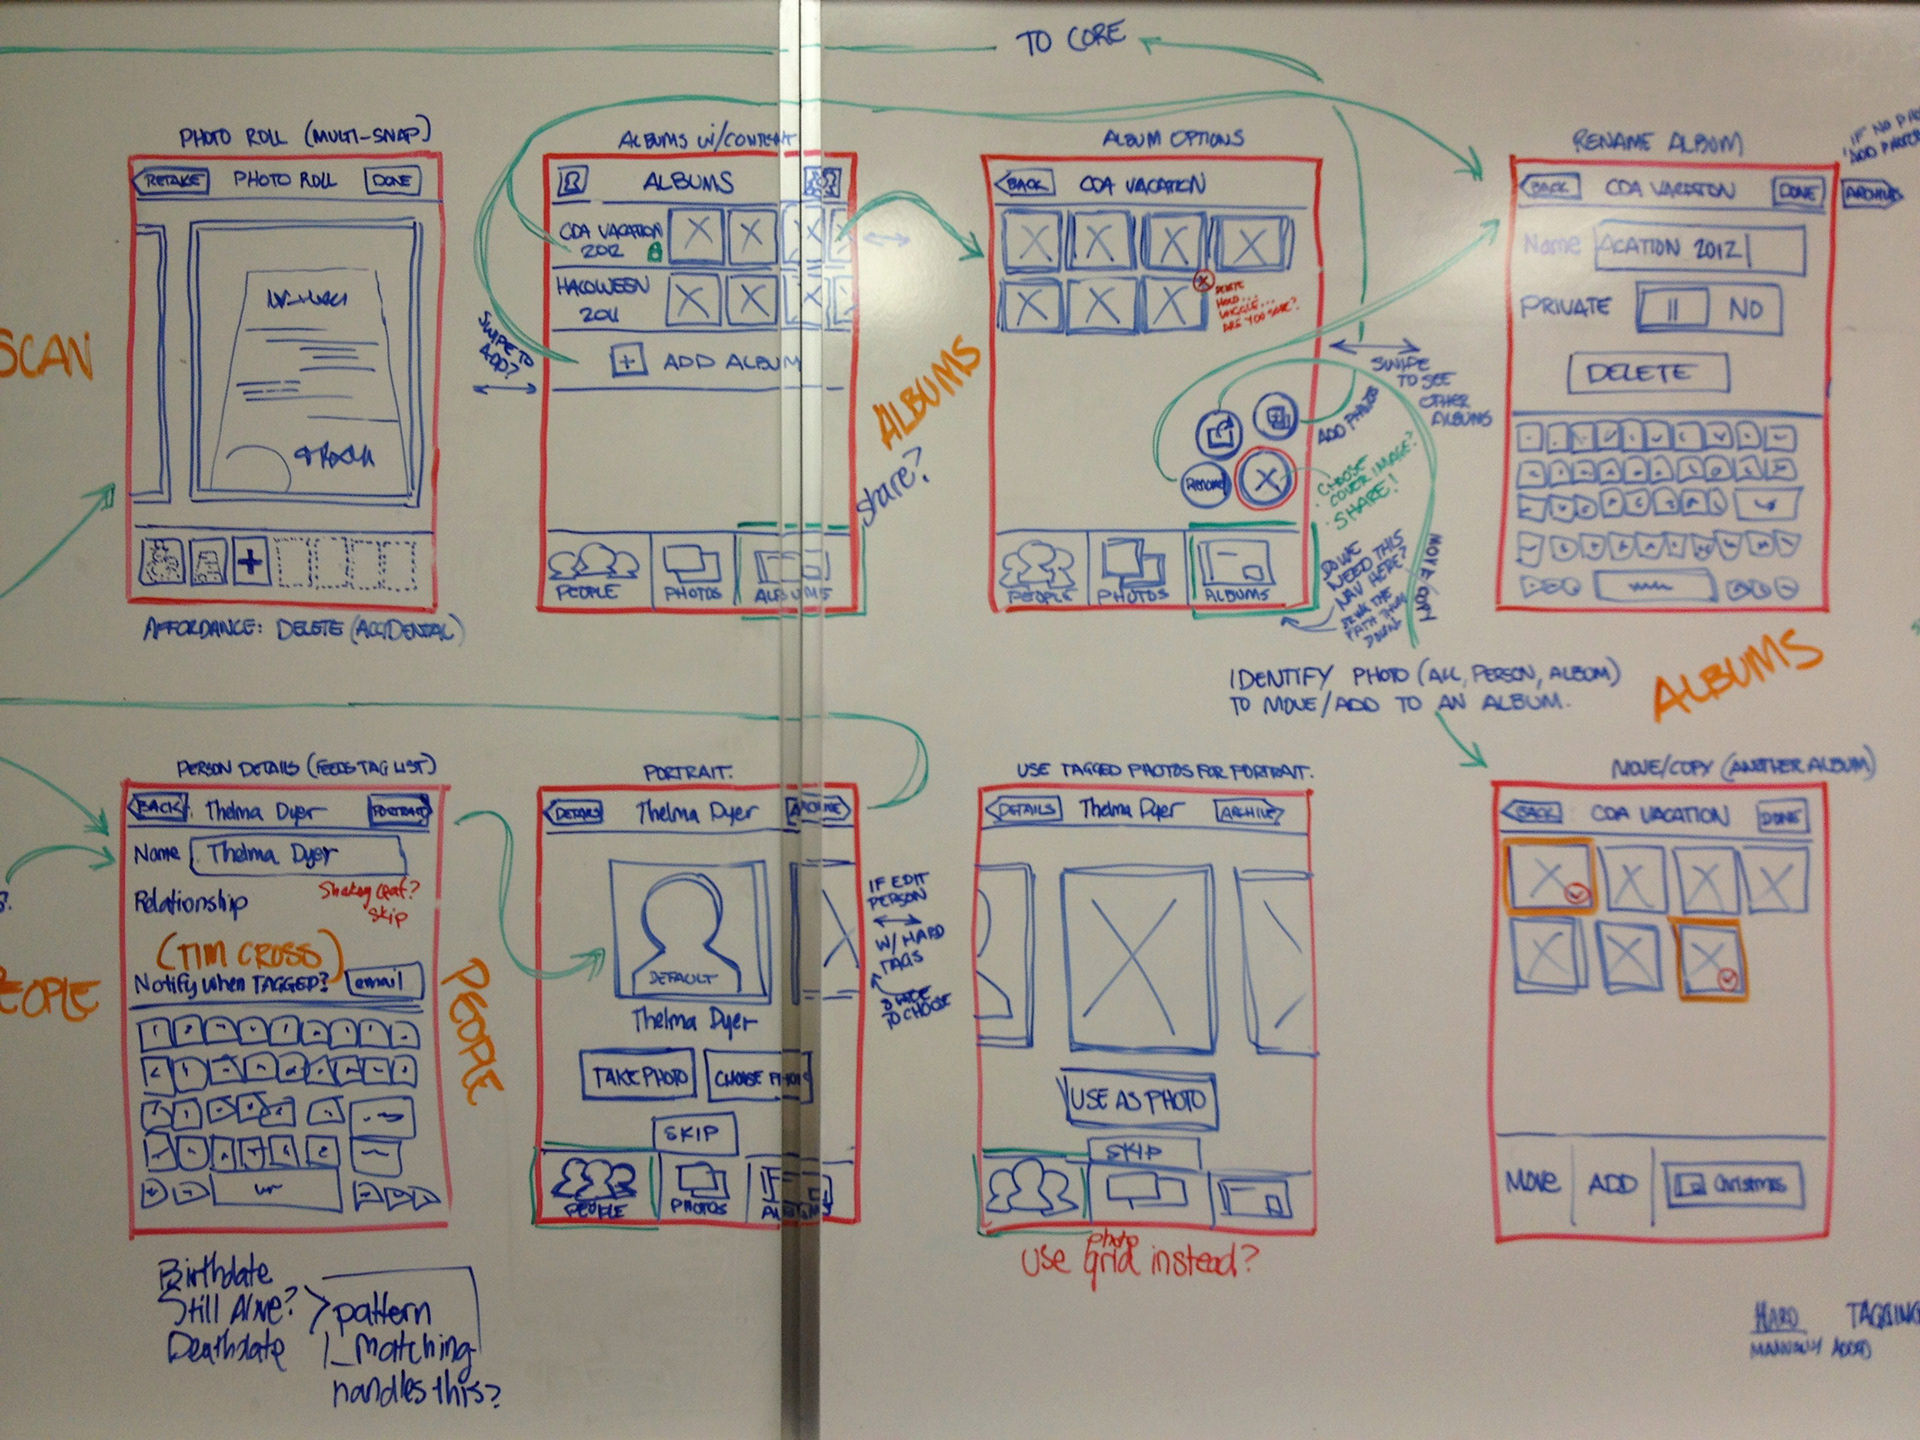 TO CORE
PHOTO ROLL (MULTI-SNAP)
RETAKE
PHOTO ROLL
DONE
AFFORDANCE: DELETE (ACCIDENTAL)
SCAN
ALBUMS W/CONTENT
ALBUMS
CDA VACATION
2012
HALLOWEEN
2011
+ ADD ALBUM
SWIPE TO
ADD?
PEOPLE
PHOTOS
ALBUMS
ALBUMS
share?
ALBUM OPTIONS
BACK
CDA VACATION
DELETE
HOLD...
WIGGLE...
ARE YOU SURE?
SWIPE
TO SEE
OTHER
ALBUMS
ADD PHOTOS
Rename
CHOOSE
COVER IMAGE?
SHARE!
DO WE
NEED THIS
NAV HERE?
MOVE/COPY
PEOPLE
PHOTOS
ALBUMS
RENAME ALBUM
BACK
CDA VACATION
DONE
Name
ACATION 2012
PRIVATE
NO
DELETE
IF NO
ADD PHOTO
IDENTIFY PHOTO (ALL, PERSON, ALBUM)
TO MOVE/ADD TO AN ALBUM.
ALBUMS
PERSON DETAILS (FEEDS TAG LIST)
BACK
Thelma Dyer
PORTRAIT
Name
Thelma Dyer
Relationship
Shakey Leaf?
skip
(TIM CROSS)
Notify when TAGGED?
email
EOPLE
PEOPLE
Birthdate
Still Alive?
Deathdate
pattern
matching
handles this?
PORTRAIT.
DETAILS
Thelma Dyer
ARCHIVE
DEFAULT
Thelma Dyer
TAKE PHOTO
CHOOSE PHOTO
SKIP
PEOPLE
PHOTOS
IF EDIT
PERSON
W/ HARD
TAGS
SWIPE
TO CHOOSE
USE TAGGED PHOTOS FOR PORTRAIT.
DETAILS
Thelma Dyer
ARCHIVE
USE AS PHOTO
SKIP
use photo grid instead?
MOVE/COPY (ANOTHER ALBUM)
BACK
CDA VACATION
DONE
MOVE
ADD
Christmas
HARD TAGGING
MANUALLY ADDED